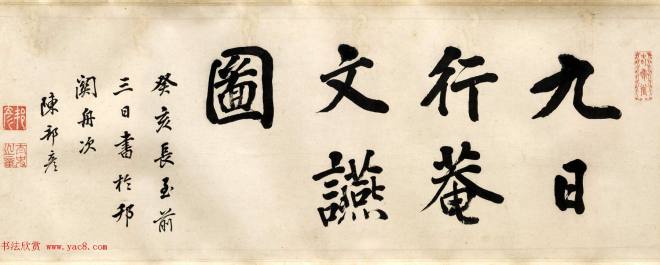 九日
行菴
文讌
圖
癸亥長至前
三日書於邗
關舟次
陳邦彥
书法欣赏 www.yac8.com